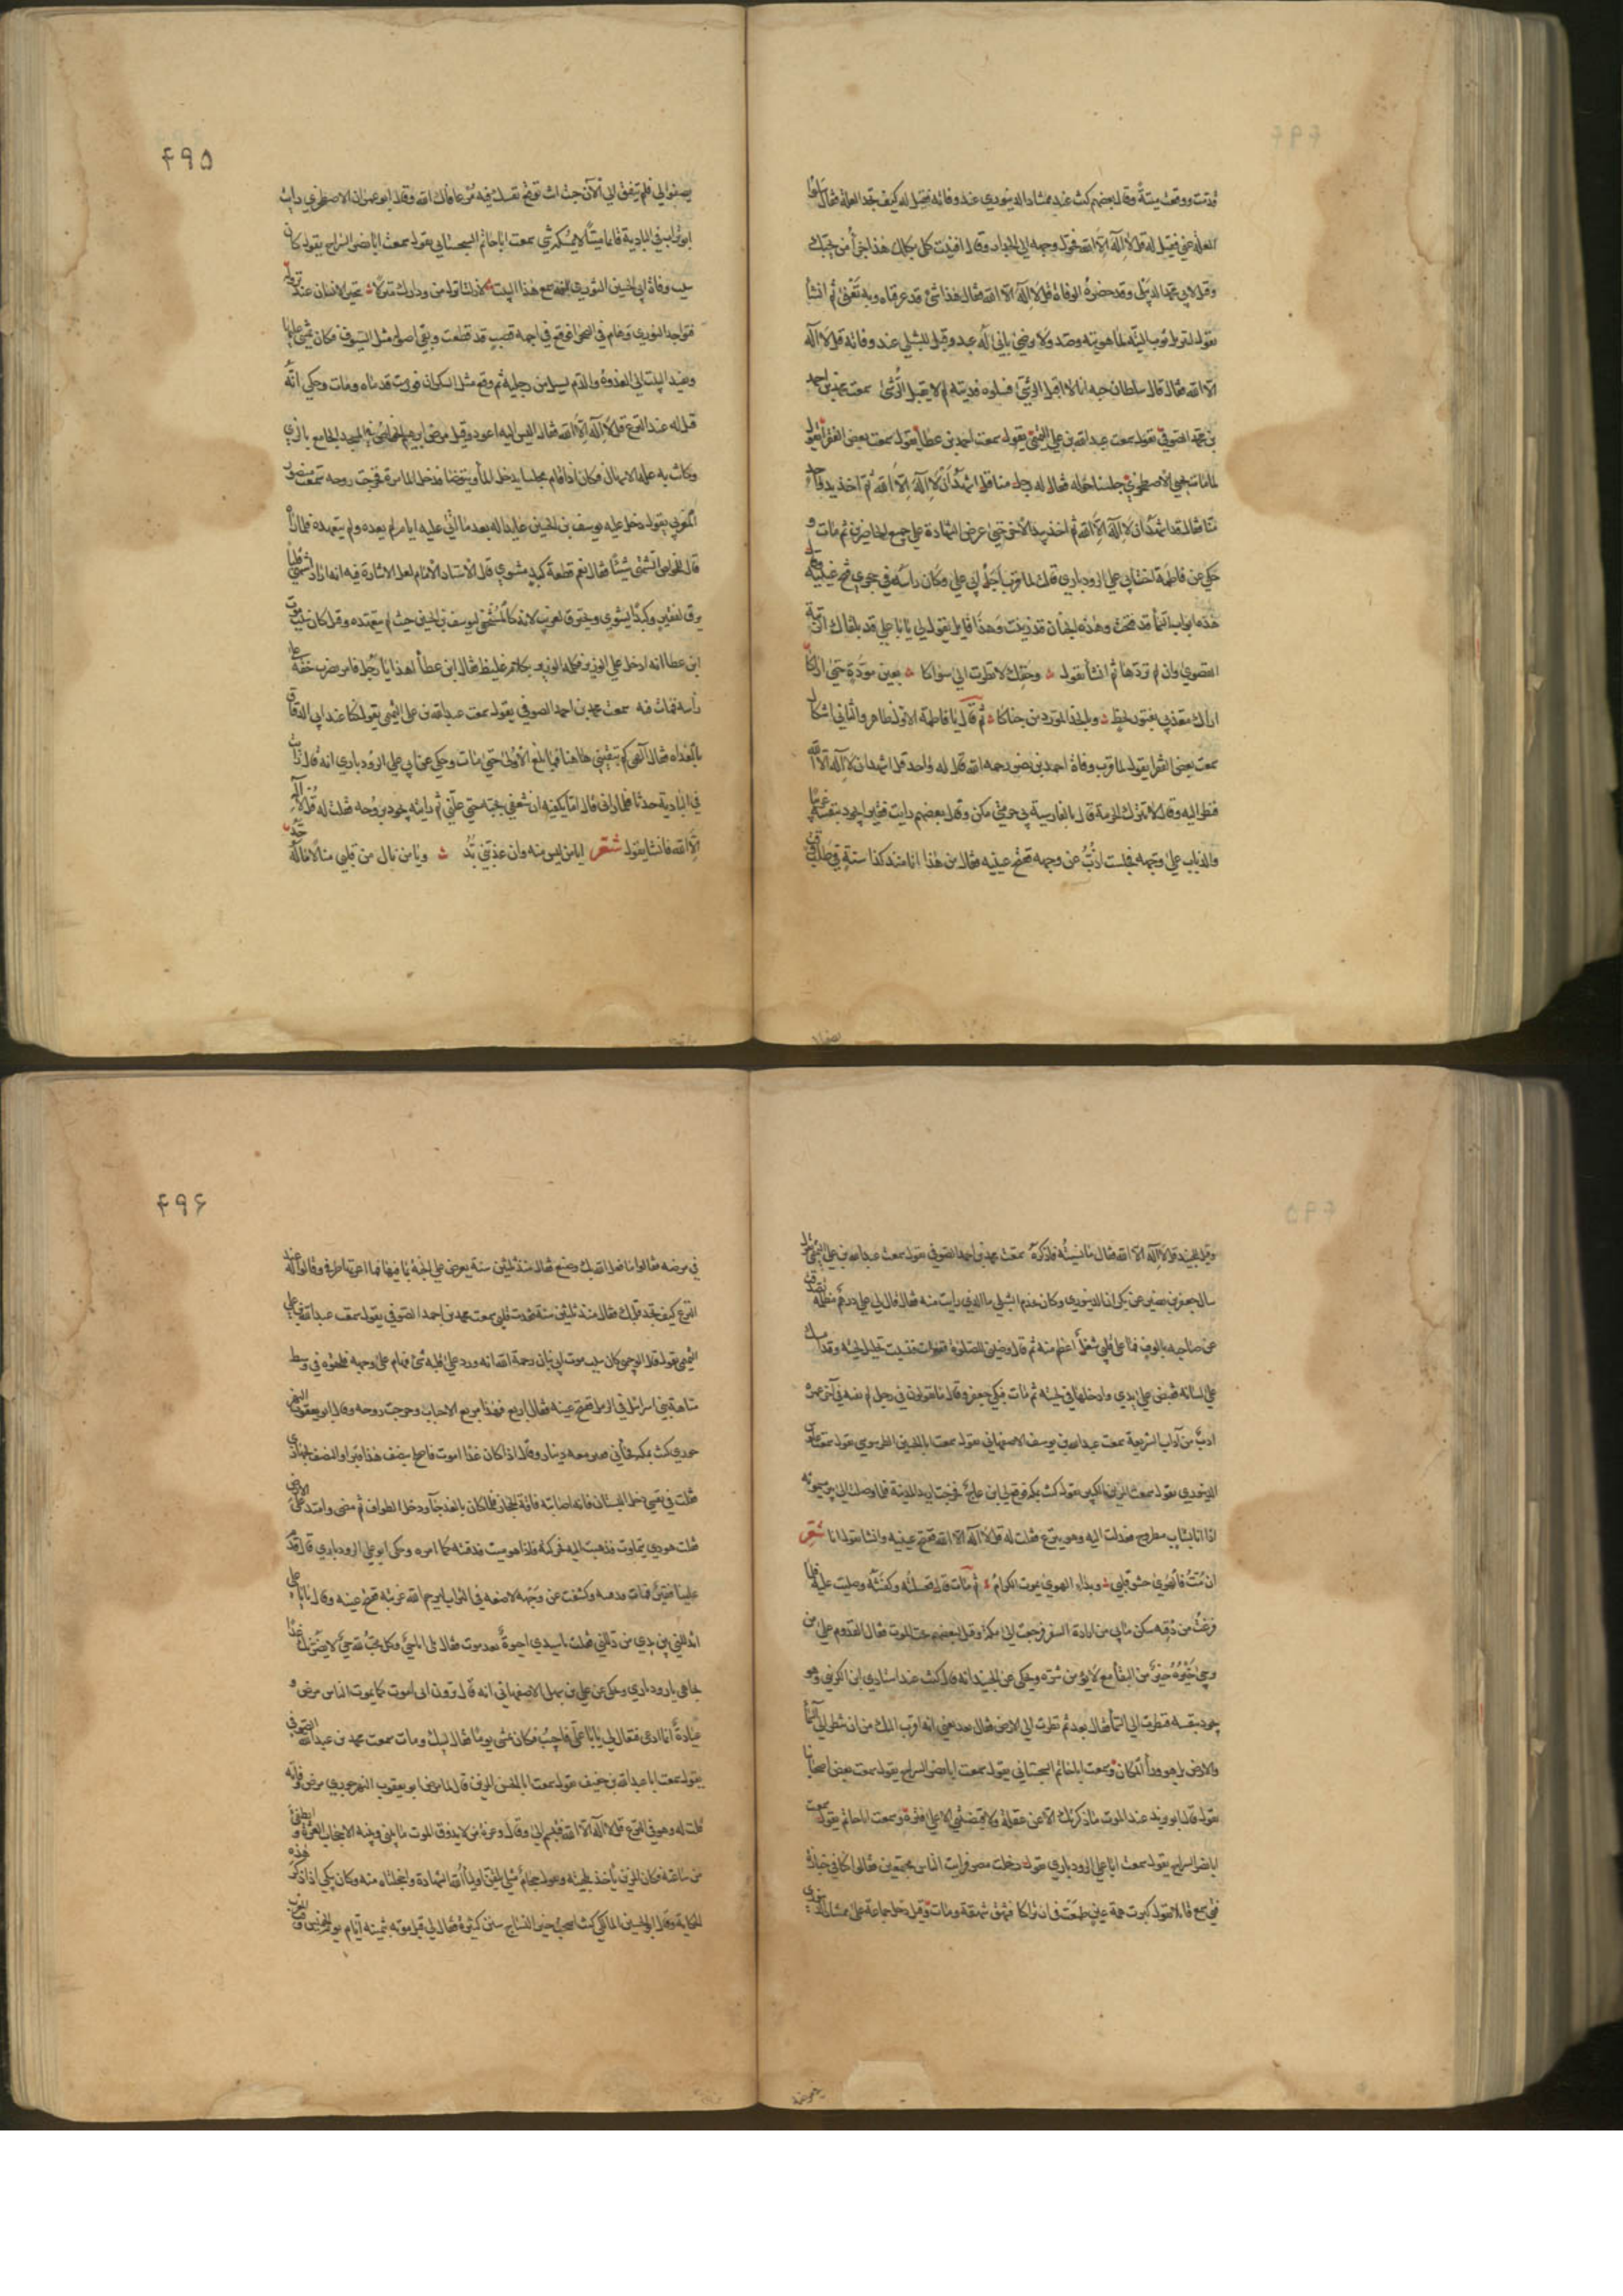 قدمت ووقعت ميتة وقال بعضهم كنت عند ممشاد الدينوري عند وفاته فقيل له كيف تجد العلة فقال سلوا
العلة عني فقيل له قل لا اله الا الله فحول وجهه الى الجدار وقال افنيت كلي بكلك هذا جزأ من يحبك
وقيل لابي محمد الدبيلي وقد حضرته الوفاة قل لا اله الا الله فقال هذا شئ قد عرفناه وبه نفنى ثم انشأ
يقول تسربل ثوب التيه لما هويته وصد ولم يرض باني له عبد وقيل للشبلي عند وفاته قل لا اله
الا الله فقال قال سلطان حبه انا لا اقبل الرشى فسلوه فديته لم لا يقبل الرشى سمعت محمد بن احمد
بن محمد الصوفي يقول سمعت عبد الله بن علي التميمي يقول سمعت احمد بن عطأ يقول سمعت بعض الفقرأ يقول
لما مات يحيى الاصطخري جلسنا حوله فقال له رجل منا قل اشهد ان لا اله الا الله ثم اخذ بيد واحد
منا فقال قل اشهد ان لا اله الا الله ثم اخذ بيد الاخر حتى عرض الشهادة على جميع الحاضرين ثم مات و
حكي عن فاطمة اخت ابي علي الروذباري قالت لما قرب اجل اخي علي وكان رأسه في حجري فتح عينيه وقال
هذه ابواب السمأ قد فتحت وهذه الجنان قد زينت وهذا قايل يقول لي يا ابا علي قد بلغناك الرتبة
القصوى وان لم تردها ثم انشأ يقول وحقك لا نظرت الى سواكا بعين مودة حتى اراكا
اراك معذبي بفتور لحظ وبالخد المورد من جناكا ثم قال يا فاطمة الاول ظاهر والثاني اشكال
سمعت بعض الفقرأ يقول لما قرب وفاة احمد بن نصر رحمه الله قال له واحد قل اشهد ان لا اله الا الله
فنظر اليه وقال لا تترك الحرمة قال بالفارسية بي حرمتي مكن وقال بعضهم رايت فقيرا يجود بنفسه غريبا
والذباب على وجهه فجلست اذب عن وجهه ففتح عينيه فقال من هذا انا منذ كذا سنة في طلب وقت
۴۹۵
يصفو لي فلم يتفق الى الآن جئت انت توقع نفسك فيه مر عافاك الله وقال ابو عمران الاصطخري رايت
ابو تراب في البادية قائما ميتا لا يمسكه شئ سمعت ابا حاتم السجستاني يقول سمعت ابا نصر السراج يقول كان
سبب وفاة ابي الحسين النوري انه سمع هذا البيت لا زلت انزل من ودادك منزلا تتحير الالباب عند نزوله
فتواجد النوري وهام في الصحرا فوقع في اجمة قصب قد قطعت وبقي اصوله مثل السيوف فكان يمشي عليها
ويعيد البيت الى الغدوة والدم يسيل من رجليه ثم وقع مثل السكران فورمت قدماه ومات وحكي انه
قيل له عند النزع قل لا اله الا الله فقال اليس اليه اعود وقيل مرض ابرهيم الخواص في المسجد الجامع بالري
وكانت به علة الاسهال فكان اذا قام مجلسا يدخل المأ ويتوضأ فدخل المأ مرة فخرجت روحه سمعت منصور
المغربي يقول دخل عليه يوسف بن الحسين عايدا له بعد ما اتى عليه ايام لم يعده ولم يتعهده فلما رآه
قال للخواص اتشتهي شيئا فقال نعم قطعة كبد مشوي قال الاستاد الامام لعل الاشارة فيه انه اراد اشتهي قلبا
يرق لفقير وكبدا يشوي ويحترق لغريب لانه كالمستجفي ليوسف بن الحسين حيث لم يتعهده وقيل كان سبب موت
ابن عطأ انه ادخل على الوزير فكلمه الوزير بكلام غليظ فقال ابن عطأ اهدأ يا رجل فامر بضرب خفه على
رأسه فمات منه سمعت محمد بن احمد الصوفي يقول سمعت عبد الله بن علي التميمي يقول كنا عند ابي الدقاق
بالغداة فقال الهي كم تبقيني هاهنا فما بلغ الاولى حتى مات وحكي عن ابي علي الروذباري انه قال رايت
في البادية حدثا فلما راني قال اما يكفيه ان شغفني بحبه حتى علني ثم رايته يجود بروحه فقلت له قل لا اله
الا الله فانشأ يقول شعر ايا من ليس منه وان عذبني بد ويا من نال من قلبي منالا ما له حد
وقيل للجنيد قل لا اله الا الله فقال ما نسيته فاذكره سمعت محمد بن احمد الصوفي يقول سمعت عبد الله بن علي التميمي يقول
سال جعفر بن نصير عن بكران الدينوري وكان يخدم الشبلي ما الذي رايت منه فقال قال لي علي درهم مظلمة تصدقت
عن صاحبه بالوف فما على قلبي شغل اعظم منه ثم قال وضئني للصلوة ففعلت فنسيت تخليل لحيته وقد امسك
على لسانه فقبض على يدي وادخلها في لحيته ثم مات فبكى جعفر وقال ما تقولون في رجل لم يفته في آخر عمره
ادب من آداب الشريعة سمعت عبد الله بن يوسف الاصبهاني يقول سمعت ابا الحسن الطرسوسي يقول سمعت علوش
الدينوري يقول سمعت المزين الكبير يقول كنت بمكة فوقع لي انزعاج فخرجت اريد المدينة فلما وصلت الى بير ميمونة
اذا انا بشاب مطروح فعدلت اليه وهو ينزع فقلت له قل لا اله الا الله ففتح عينيه وانشأ يقول انا شعر
ان مت فالهوى حشو قلبي وبداء الهوى يموت الكرام ثم مات قال فغسلته وكفنته وصليت عليه فلما
فرغت من دفنه سكن ما بي من ارادة السفر فرجعت الى مكة وقيل لبعضهم اتحب الموت فقال القدوم على من
يرجى خيره خير من البقأ مع من لا يؤمن شره وحكي عن الجنيد انه قال كنت عند استادي ابن الكرنبي وهو
يجود بنفسه فنظرت الى السمأ فقال بعد ثم نظرت الى الارض فقال بعد يعني انه اقرب اليك من ان تنظر الى السمأ
والارض بل هو ورأ المكان وسمعت ابا حاتم السجستاني يقول سمعت ابا نصر السراج يقول سمعت بعض اصحابنا
يقول قال ابو يزيد عند الموت ما ذكرتك الا عن غفلة ولا قبضتني الا على فترة وسمعت ابا حاتم يقول سمعت
ابا نصر السراج يقول سمعت ابا علي الروذباري يقول دخلت مصر فرايت الناس مجتمعين فقالوا كنا في جنازة
فتى سمع قائلا يقول كبرت همة عين طمعت في ان تراكا فشهق شهقة ومات وقيل دخل جماعة على ممشاد الدينوري
۴۹۶
في مرضه فقالوا ما فعل الله بك وصنع فقال منذ ثلثين سنة يعرض علي الجنة بما فيها فما اعرتها طرفي وقالوا له عند
النزع كيف تجد قلبك فقال منذ ثلثين سنة فقدت قلبي سمعت محمد بن احمد الصوفي يقول سمعت عبد الله بن علي
التميمي يقول قال الوجيهي كان سبب موت ابن بنان رحمة الله انه ورد على قلبه شئ فهام على وجهه فلحقوه في وسط
متاهة بني اسرائل في الرمل ففتح عينيه فقال اربع فهذا مربع الاحباب وخرجت روحه وقال ابو يعقوب النهر
جوري كنت بمكة فجأني فقير معه دينار وقال اذا كان غدا اموت فاصلح بنصف هذا قبرا والنصف لجهازي
فقلت في نفسي دخل البستان فانه اصابته فاقة الحجاز فلما كان بالغد جأ ودخل الطواف ثم مضى وامتد على الارض
فقلت هو ذي يتماوت فذهبت اليه فحركته فاذا هو ميت فدفنته كما امره وحكى ابو علي الروذباري قال قدم
علينا فقير فمات فدفنته وكشفت عن وجهه لاضعه في التراب ليرحم الله غربته ففتح عينه وقال يا ابا علي
اتذللني بين يدي من دللني فقلت يا سيدي احيوة بعد موت فقال لي انا حي وكل محب لله حي لانصرنك غدا
بجاهي يا روذباري وحكي عن علي بن سهل الاصفهاني انه قال ترون اني اموت كما يموت الناس مرض و
عيادة انما ادعى فقال لي يا ابا علي فاجب فكان يمشي يوما فقال لبيك ومات سمعت محمد بن عبد الله الصوفي
يقول سمعت ابا عبد الله بن خفيف يقول سمعت ابا الحسن المزين قال لما مرض ابو يعقوب النهرجوري مرض وفاته
قلت له وهو في النزع قل لا اله الا الله فتبسم الي وقال وعزة من لا يذوق الموت ما بيني وبينه الا حجاب العزة وانطفئ
من ساعته فكان المزين يأخذ بلحيته ويقول حجام مثلي يلقن اوليأ الله الشهادة وا خجلتاه منه وكان يبكي اذا ذكر هذه
الحكاية وقال ابو الحسين المالكي كنت اصحب خير النساج سنين كثيرة فقال لي قبل موته بثمنية ايام يوم الخميس وقت المغرب